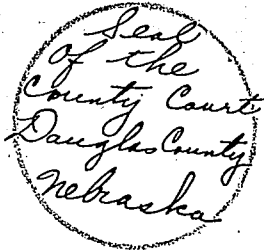 Seal
of the
County Court
Douglas County
Nebraska